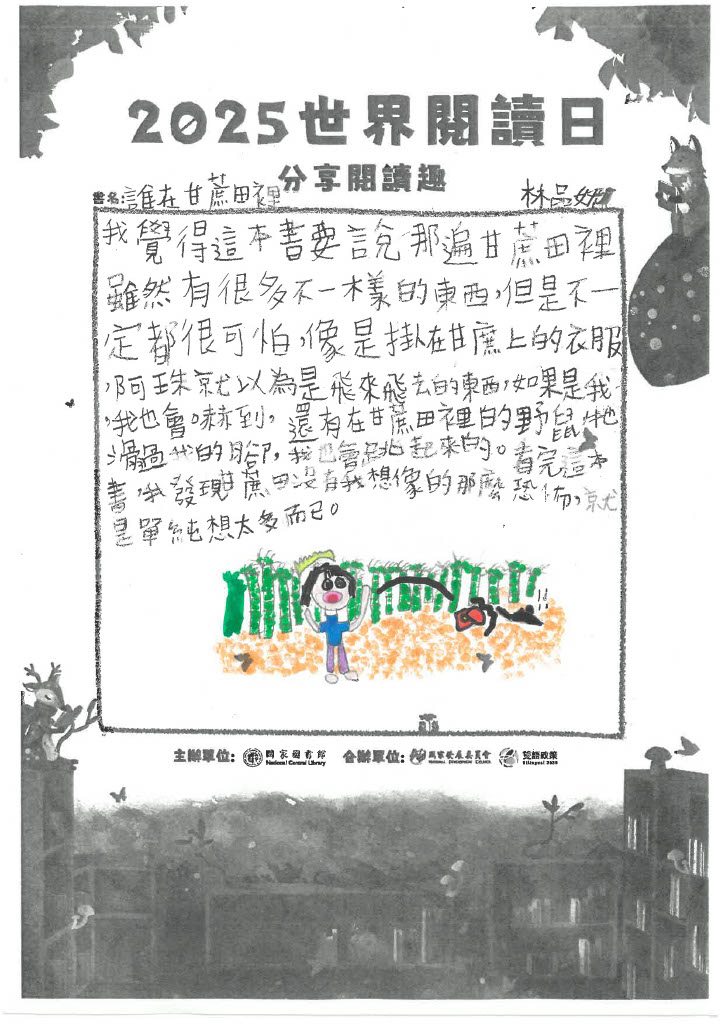 2025世界閱讀日
分享閱讀趣
書名:誰在甘蔗田裡 林品
我覺得這本書要說那遍甘蔗田裡
雖然有很多不一樣的東西,但是不一
定都很可怕,像是掛在甘蔗上的衣服
,阿珠就以為是飛來飛去的東西,如果是我
,我也會嚇到,還有在甘蔗田裡的野鼠,牠
滑過我的腳,我也會跳起來的。看完這本
書,我發現甘蔗田沒有我想像的那麼恐怖,就
是單純想太多而已。
主辦單位: 國家圖書館 National Central Library 合辦單位: 國家發展委員會 NATIONAL DEVELOPMENT COUNCIL 雙語政策 Bilingual 2030